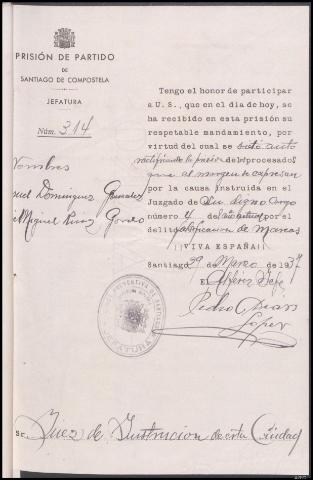 PRISIÓN DE PARTIDO
DE
SANTIAGO DE COMPOSTELA
JEFATURA
Núm. 314
Nombres
uel Dominguez Gonzalez
Miguel Gondo
Tengo el honor de participar
a U. S., que en el dia de hoy, se
ha recibido en esta prisión su
respetable mandamiento, por
virtud del cual se dictó auto
ratificando la prisión de los procesados
que al margen se expresan
por la causa instruida en el
Juzgado de Su digno cargo
número 4 del actual por el
delito falsificacion de Marcas
¡¡VIVA ESPAÑA!!
Santiago 29 de Marzo de 1937
El Alférez Jefe
Pedro Dias
López
JEFATURA
Sr. Juez de Instruccion de esta Ciudad